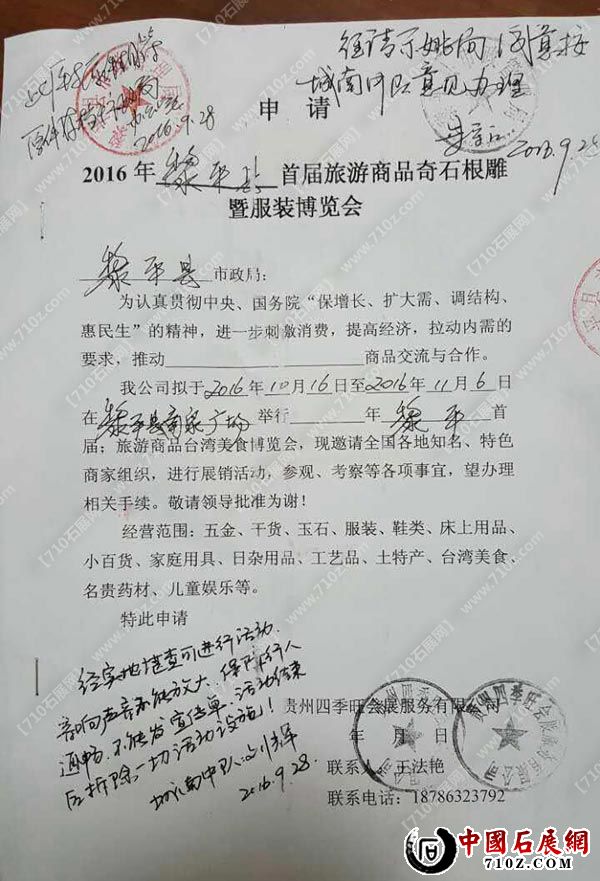 经请示姚局 同意按
城南中队意见办理
2016.9.28
2016.9.28
申 请
2016年 黎平县 首届旅游商品奇石根雕
暨服装博览会
黎平县 市政局:
为认真贯彻中央、国务院“保增长、扩大需、调结构、
惠民生”的精神，进一步刺激消费，提高经济，拉动内需的
要求，推动 商品交流与合作。
我公司拟于2016年10月16日至2016年11月6日
在黎平县南泉广场 举行 年 黎平 首
届；旅游商品台湾美食博览会，现邀请全国各地知名、特色
商家组织，进行展销活动，参观、考察等各项事宜，望办理
相关手续。敬请领导批准为谢！
经营范围：五金、干货、玉石、服装、鞋类、床上用品、
小百货、家庭用具、日杂用品、工艺品、土特产、台湾美食、
名贵药材、儿童娱乐等。
特此申请
经实地谨查可进行活动.
音响声音不能放大、保障行人
通畅.不能发宣传单.活动结束
后拆除一切活动设施！
城南中队:刘辉
2016.9.28.
贵州四季旺会展服务有限公司
年 月 日
联系人：王法艳
联系电话：18786323792
贵州四季旺会展服务有限公司
中國石展網
710Z.COM
【710石展网】
www.710z.com